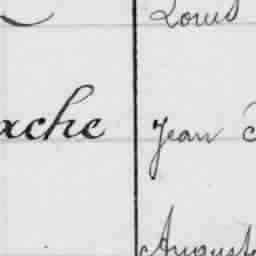 Louis
ache Jean
August